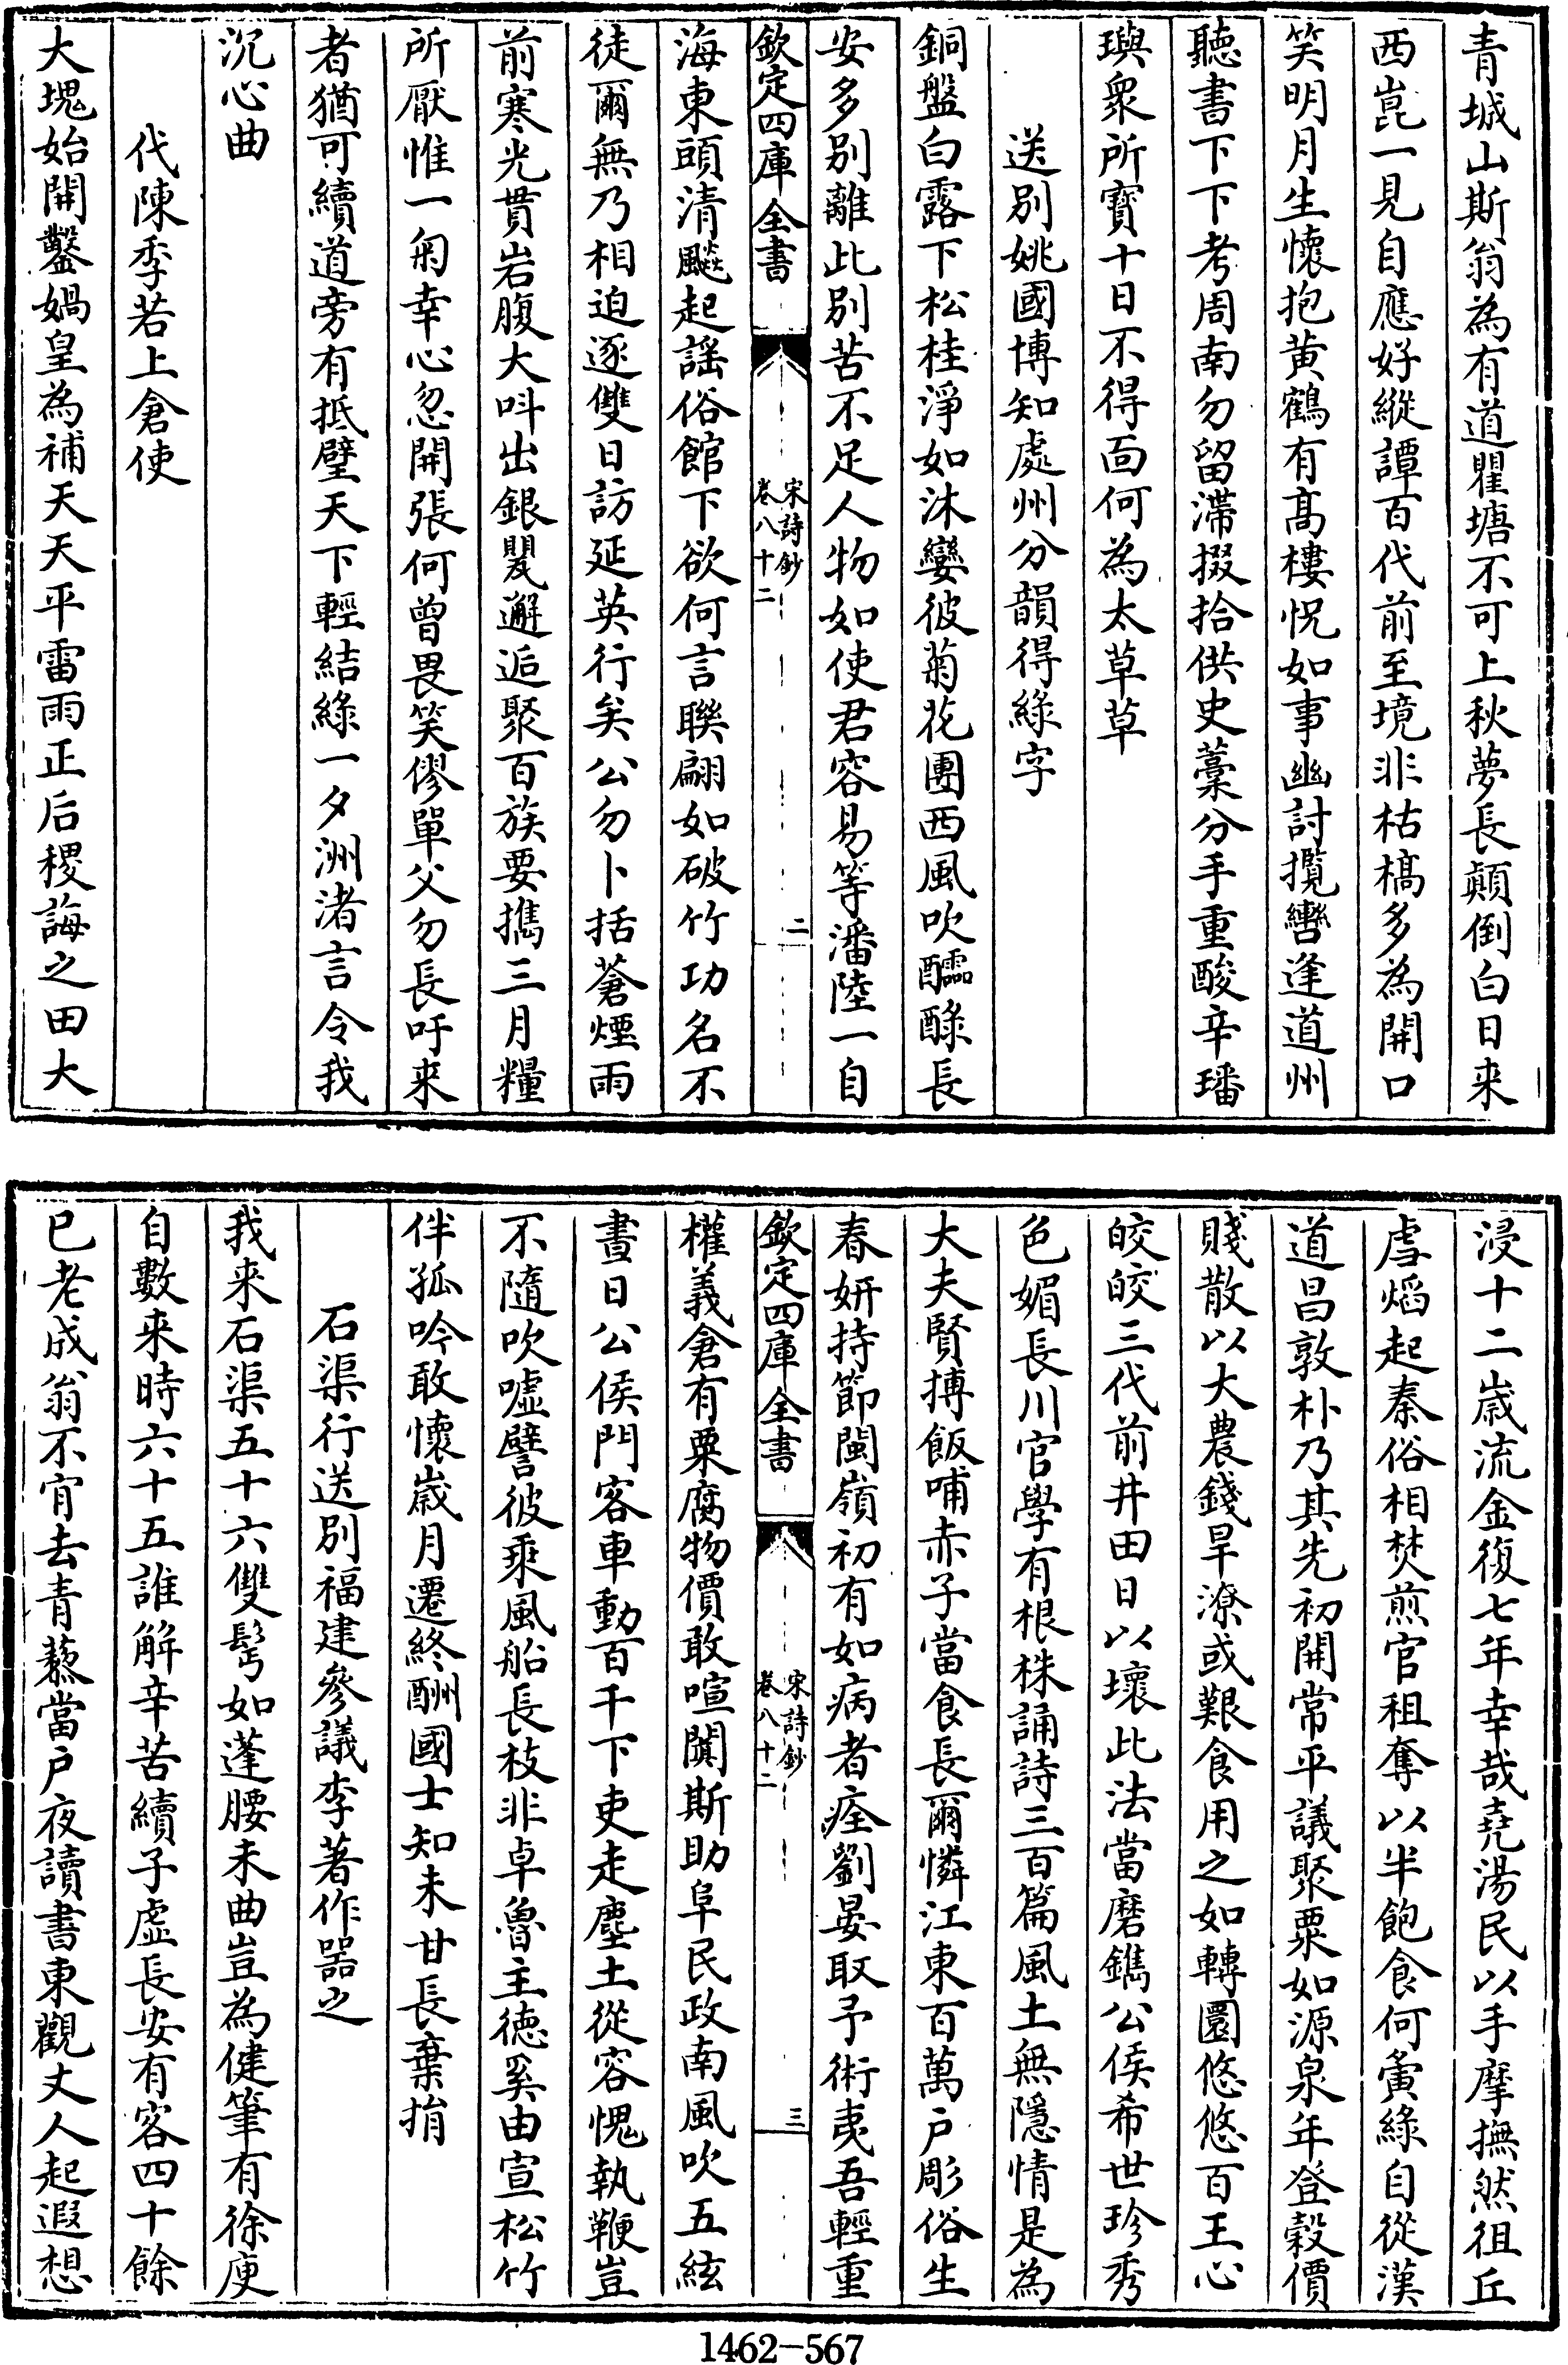 青城山斯翁為有道瞿塘不可上秋夢長顛倒白日来
西崑一見自應好縱譚百代前至境非枯槁多為開口
笑明月生懷抱黄鶴有髙樓怳如事幽討攬轡逢道州
聽書下下考周南勿留滯掇拾供史藁分手重酸辛璠
璵衆所寳十日不得面何為太草草
送别姚國博知處州分韻得綠字
銅盤白露下松桂淨如沐孌彼菊花團西風吹醽醁長
安多别離此别苦不足人物如使君容易等潘陸一自
欽定四庫全書
宋詩鈔
卷八十二
二
海東頭清飈起謡俗館下欲何言聯翩如破竹功名不
徒爾無乃相迫逐雙日訪延英行矣公勿卜括蒼煙雨
前寒光貫岩腹大呌出銀甖邂逅聚百族要攜三月糧
所厭惟一匊幸心忽開張何曾畏笑僇單父勿長吁来
者猶可續道旁有抵璧天下輕結綠一夕洲渚言令我
沉心曲
代陳季若上倉使
大塊始開鑿媧皇為補天天平雷雨正后稷誨之田大
浸十二歳流金復七年幸哉堯湯民以手摩撫然徂丘
虐熖起秦俗相焚煎官租奪以半飽食何夤緣自從漢
道昌敦朴乃其先初開常平議聚粟如源泉年登穀價
賤散以大農錢旱潦或艱食用之如轉圜悠悠百王心
皎皎三代前井田日以壞此法當磨鐫公侯希世珍秀
色媚長川官學有根株誦詩三百篇風土無隱情是為
大夫賢摶飯哺赤子當食長爾憐江東百萬户彫俗生
春妍持節閩嶺初有如病者痊劉晏取予術夷吾輕重
欽定四庫全書
宋詩鈔
卷八十二
三
權義倉有粟腐物價敢喧闐斯助阜民政南風吹五絃
晝日公侯門客車動百千下吏走塵土從容愧執鞭豈
不隨吹嘘譬彼乘風船長枝非卓魯主徳奚由宣松竹
伴孤吟敢懷歳月遷終酬國士知未甘長棄捐
石渠行送别福建參議李著作器之
我来石渠五十六雙髩如蓬腰未曲豈為健筆有徐庾
自數来時六十五誰解辛苦續子虚長安有客四十餘
已老成翁不肎去青藜當户夜讀書東觀丈人起遐想
1462-567